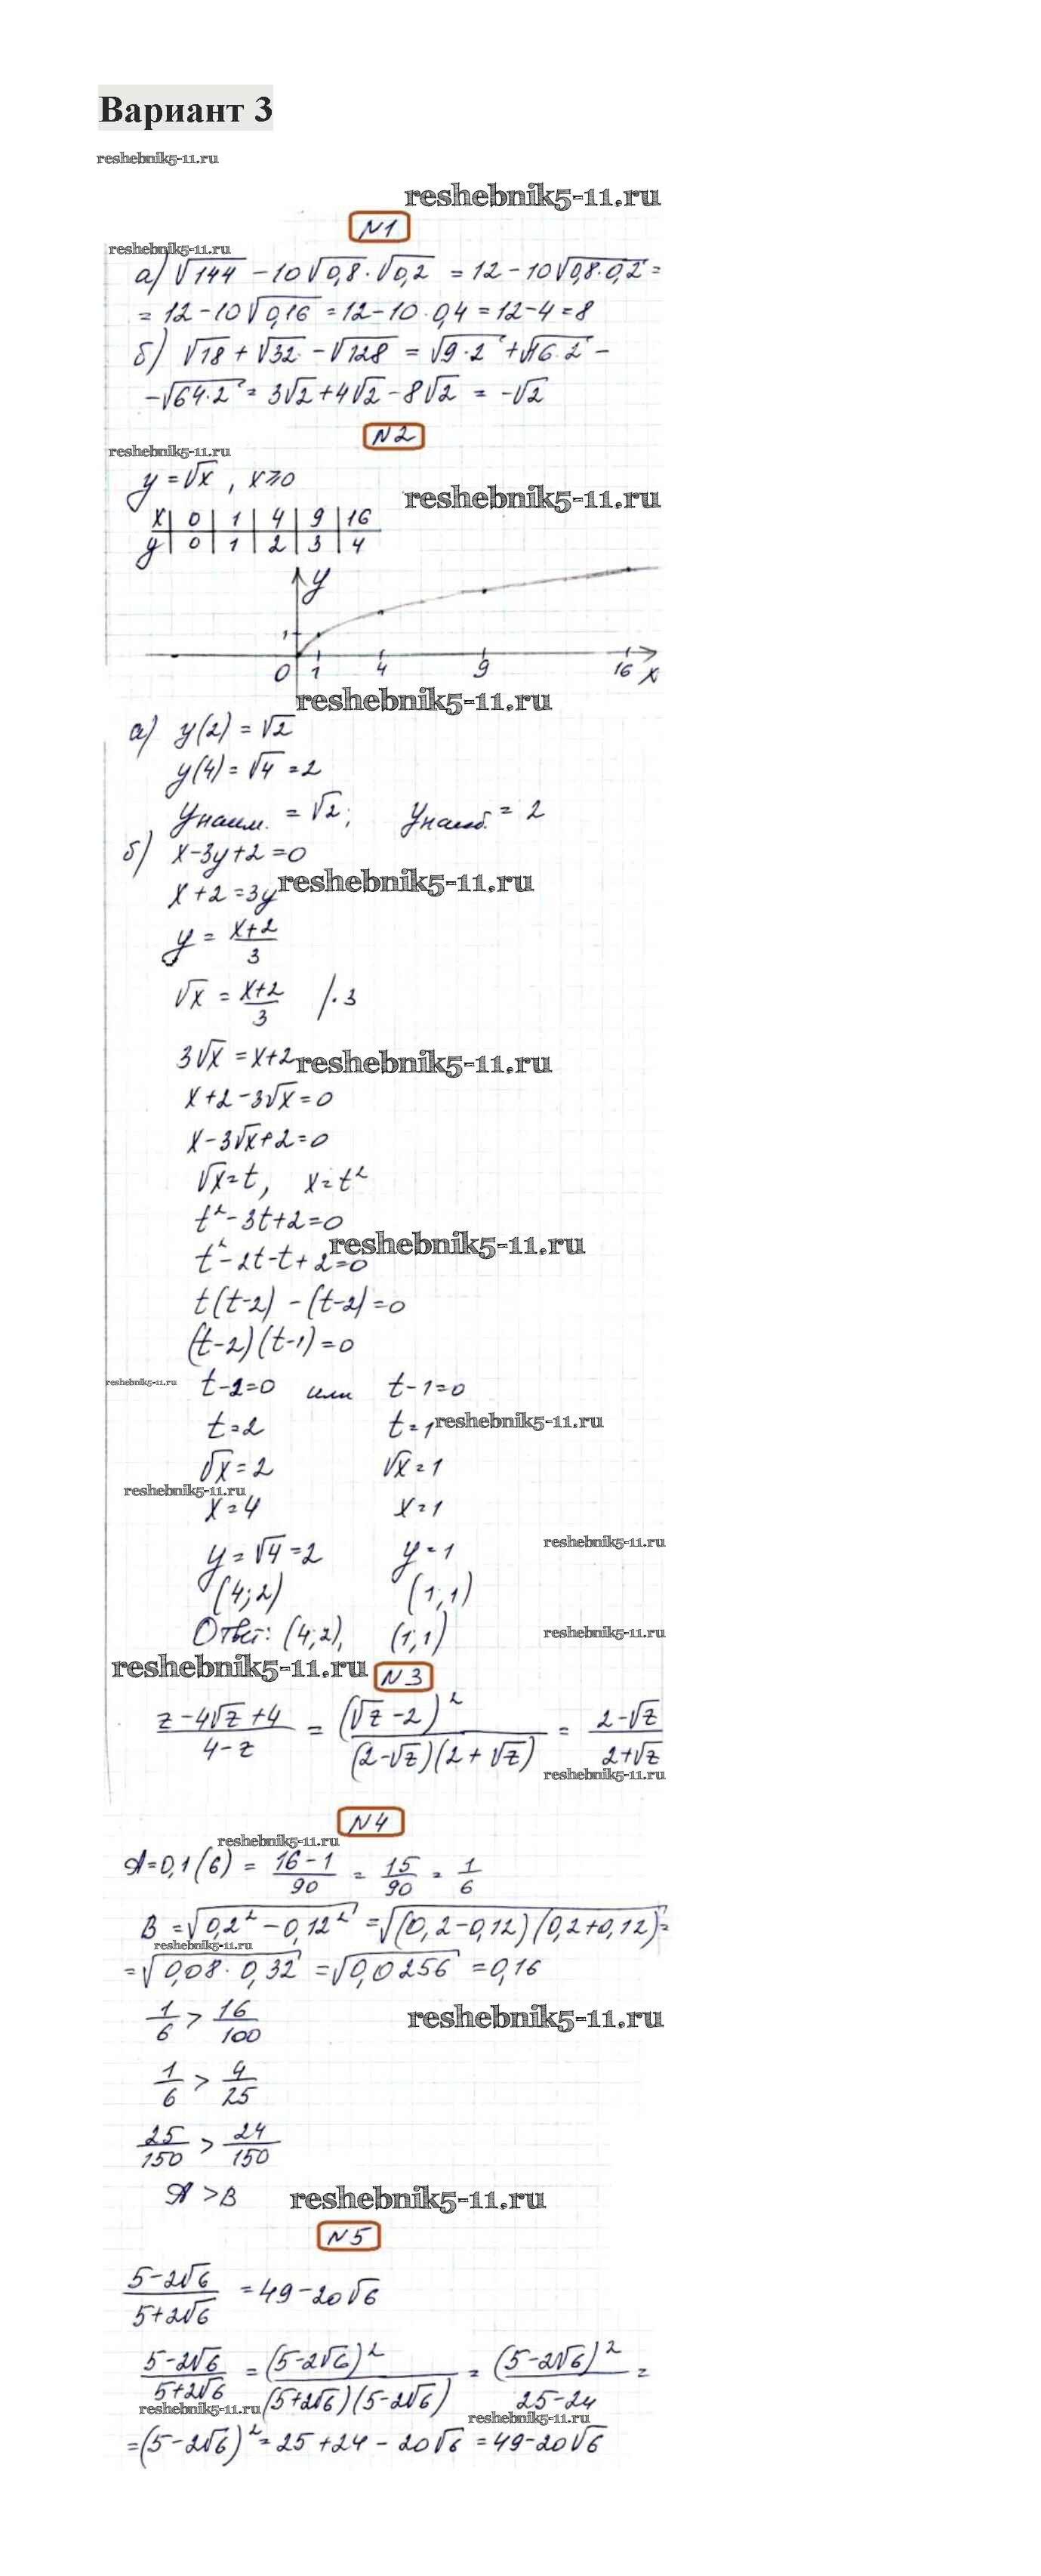 Вариант 3
reshebnik5-11.ru
reshebnik5-11.ru
N1
reshebnik5-11.ru
а) √144 - 10√0,8 · √0,2 = 12 - 10√0,8·0,2 =
= 12 - 10√0,16 = 12 - 10 · 0,4 = 12 - 4 = 8
б) √18 + √32 - √128 = √9·2 + √16·2 -
- √64·2 = 3√2 + 4√2 - 8√2 = -√2
N2
reshebnik5-11.ru
y = √x , x ≥ 0
reshebnik5-11.ru
x | 0 | 1 | 4 | 9 | 16
y | 0 | 1 | 2 | 3 | 4
y
1
0 1 4 9 16 x
reshebnik5-11.ru
а) y(2) = √2
y(4) = √4 = 2
yнаим. = √2; yнаиб. = 2
б) x - 3y + 2 = 0
reshebnik5-11.ru
x + 2 = 3y
y = (x+2)/3
√x = (x+2)/3 /·3
3√x = x+2
reshebnik5-11.ru
x + 2 - 3√x = 0
x - 3√x + 2 = 0
√x = t, x = t²
t² - 3t + 2 = 0
reshebnik5-11.ru
t² - 2t - t + 2 = 0
t(t-2) - (t-2) = 0
(t-2)(t-1) = 0
reshebnik5-11.ru
t - 2 = 0 или t - 1 = 0
t = 2 t = 1
reshebnik5-11.ru
√x = 2 √x = 1
reshebnik5-11.ru
x = 4 x = 1
reshebnik5-11.ru
y = √4 = 2 y = 1
(4; 2) (1; 1)
Ответ: (4; 2), (1; 1)
reshebnik5-11.ru
reshebnik5-11.ru
N3
(z - 4√z + 4)/(4 - z) = (√z - 2)²/((2 - √z)(2 + √z)) = (2 - √z)/(2 + √z)
reshebnik5-11.ru
N4
reshebnik5-11.ru
A = 0,1(6) = (16 - 1)/90 = 15/90 = 1/6
B = √0,2² - 0,12² = √(0,2 - 0,12)(0,2 + 0,12) =
reshebnik5-11.ru
= √0,08 · 0,32 = √0,0256 = 0,16
1/6 > 16/100
reshebnik5-11.ru
1/6 > 4/25
25/150 > 24/150
A > B
reshebnik5-11.ru
N5
(5 - 2√6)/(5 + 2√6) = 49 - 20√6
(5 - 2√6)/(5 + 2√6) = (5 - 2√6)²/((5 + 2√6)(5 - 2√6)) = (5 - 2√6)²/(25 - 24) =
reshebnik5-11.ru
reshebnik5-11.ru
= (5 - 2√6)² = 25 + 24 - 20√6 = 49 - 20√6